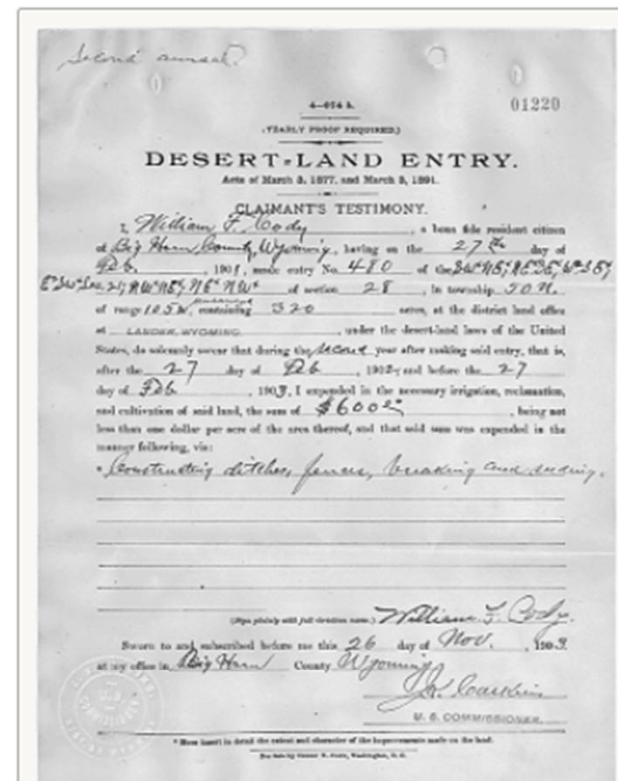 Second annual.
4—074 b.
01220
(YEARLY PROOF REQUIRED.)
DESERT-LAND ENTRY.
Acts of March 3, 1877, and March 3, 1891.
CLAIMANT'S TESTIMONY.
I, William F. Cody, a bona fide resident citizen
of Big Horn County, Wyoming, having on the 27th day of
Feb., 1901, made entry No. 480 of the SW¼ NE¼, NE¼ SE¼, W½ SE¼
E½ SW¼ Sec. 21, NW¼ NE¼, NE¼ NW¼ of section 28, in township 50 N.
of range 105 W, containing 320 acres, at the district land office
at LANDER, WYOMING., under the desert-land laws of the United
States, do solemnly swear that during the second year after making said entry, that is,
after the 27 day of Feb, 1902, and before the 27
day of Feb, 1903, I expended in the necessary irrigation, reclamation,
and cultivation of said land, the sum of $600, being not
less than one dollar per acre of the area thereof, and that said sum was expended in the
manner following, viz:
* Constructing ditches, fences, breaking and seeding.
(Sign plainly with full christian name.) William F. Cody.
Sworn to and subscribed before me this 26 day of Nov., 1903.
at my office in Big Horn County Wyoming
U. S. COMMISSIONER.
* Here insert in detail the extent and character of the improvements made on the land.